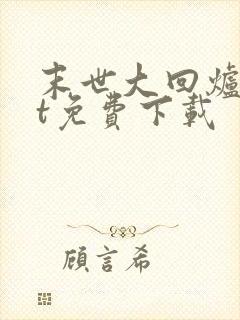 末世大回爐
t免費下載
顧言希